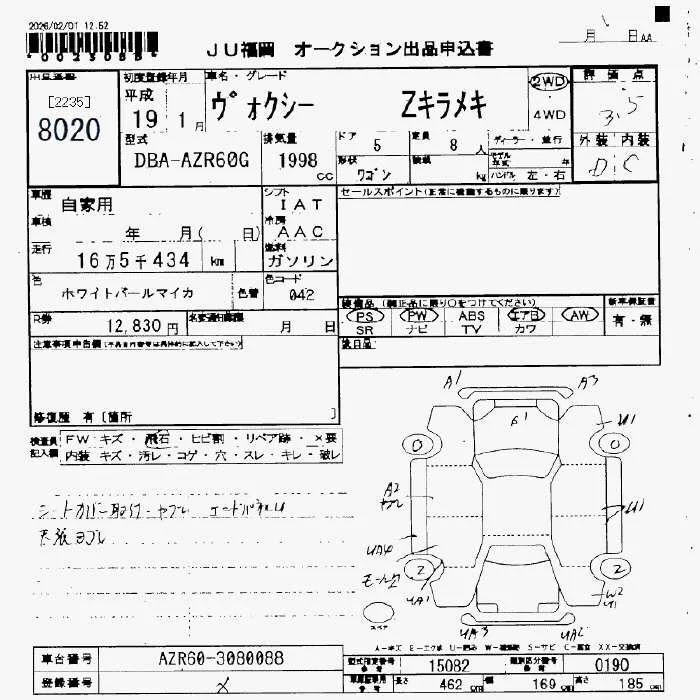 2026/02/01 12.52
*0023088*
JU福岡 オークション出品申込書
月 日AA
[2235]
8020
初度登録年月
平成
19 1月
車名・グレード
ヴォクシー Zキラメキ
2WD
4WD
評価点
3.5
外装 内装
D C
型式
DBA-AZR60G
排気量
1998 cc
ドア
5
定員
8 人
形状
ワゴン
積載
kg
ディーラー・並行
モデル年式 年
ハンドル 左・右
車歴
自家用
車検
年 月( 日)
走行
16万5千434 km
シフト
IAT
冷房
AAC
燃料
ガソリン
セールスポイント(正常に機能するものに限ります)
色
ホワイトパールマイカ
色替
色コード
042
R券
12,830円
名変通知期限
月 日
装備品 (純正品に限り○をつけてください)
PS PW ABS エアB AW
SR ナビ TV カワ
新車保証書
有・無
後日品
注意事項申告欄
修復歴 有 [箇所 ]
検査員記入欄
FW キズ・飛石・ヒビ割・リペア跡・×要
内装 キズ・汚レ・コゲ・穴・スレ・キレ・破レ
シートカバー取付 ヤブレ
天張ヨゴレ
A1 A3
G1
U1
A2
ヤブレ
U1
UA4
モール
UA1
W2
U1
UA3 UA2
0 0
2 2
スペア
車台番号
AZR60-3080088
登録番号
型式指定番号
15082
類別区分番号
0190
長さ
462 cm
幅
169 cm
高さ
185 cm